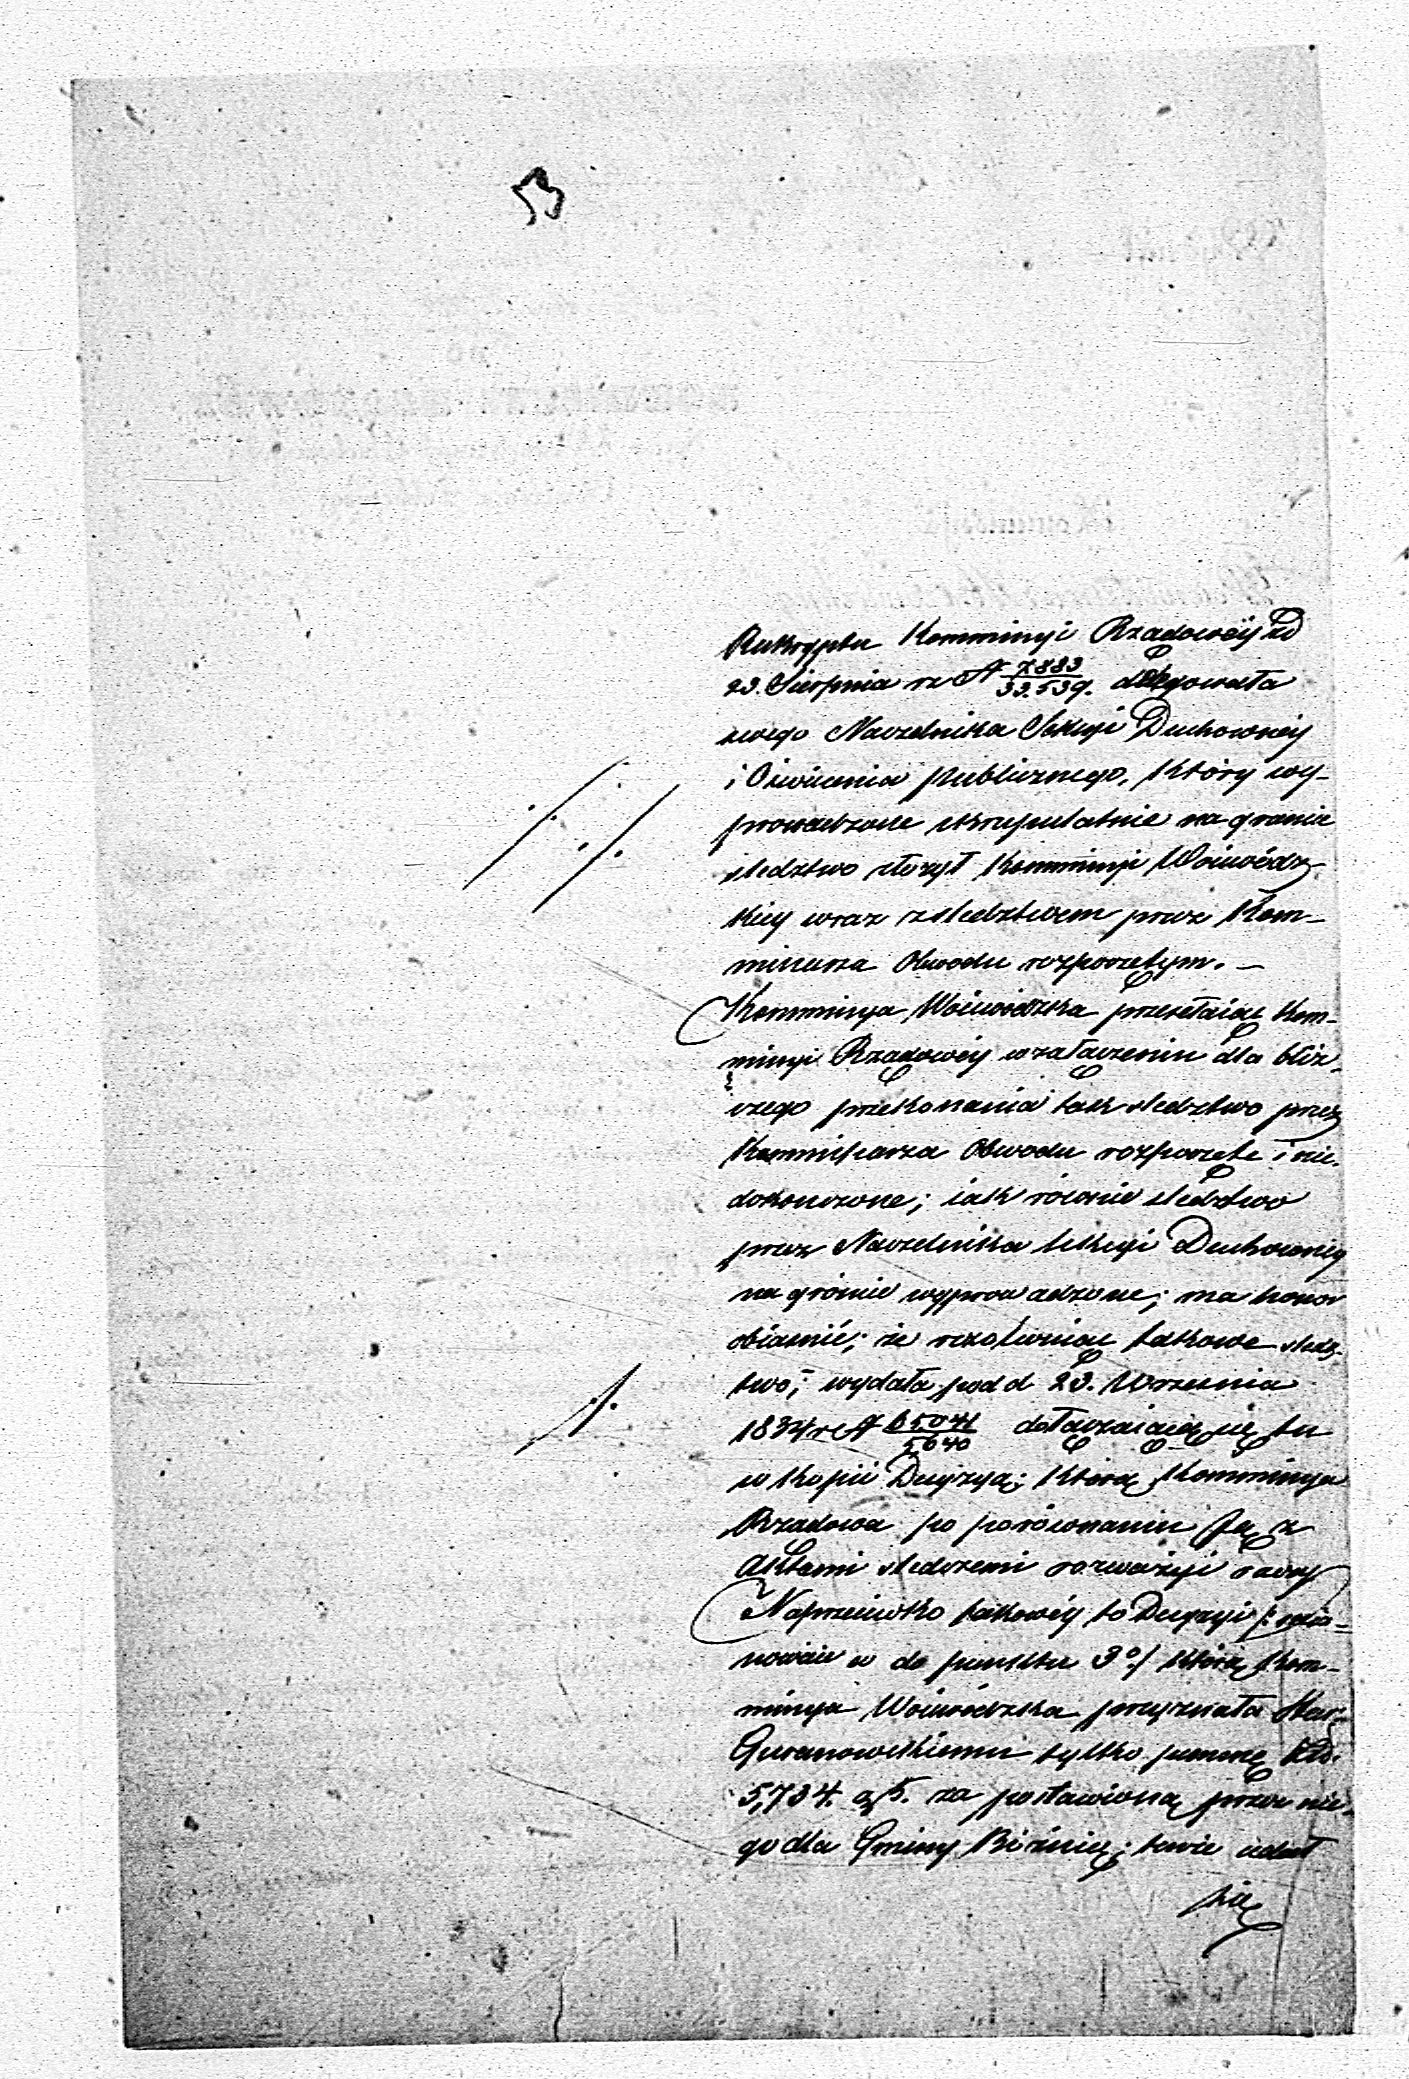 53
Reskryptu Kommissyi Rządowéy z d
23. Sierpnia rz N 7883/33.539. delegowała
swego Naczelnika Sekcyi Duchownéy
i Oświecenia publicznego, który wy-
prowadzone skrupulatnie na gruncie
śledztwo złożył Kommissyi Woiewódz-
kiey wraz z śledztwem przez Kom-
missarza Obwodu rozpoczętym. —
Kommissya Woiewódzka przesełaiąc Kom-
missyi Rządowéy w załączeniu dla bliż-
szego przekonania tak śledztwo przez
Kommissarza Obwodu rozpoczęte i nie-
dokończone; iak równie śledztwo
przez Naczelnika sekcyi Duchownéy
na gróncie wyprowadzone; ma honor
obiaśnić; że rezolwuiąc takowe śledz-
two; wydała pod d 23. Września
1834 r N 65041/5640 dołączaiącą się tu
w kopii Decyzyą; którą Kommissya
Rządowa po porównaniu Jéy z
aktami śledczemi rozważyć raczy
Naprzeciwko takowéy to Decyzyi /: mia-
nowicie w do punktu 3o/ którą Kom-
missya Woiewódzka przyznała Star:
Guranowskiemu tylko summę Złp.
5,734. g 5. za postawioną przez nie-
go dla Gminy Bóżnicę; tenże udał
się